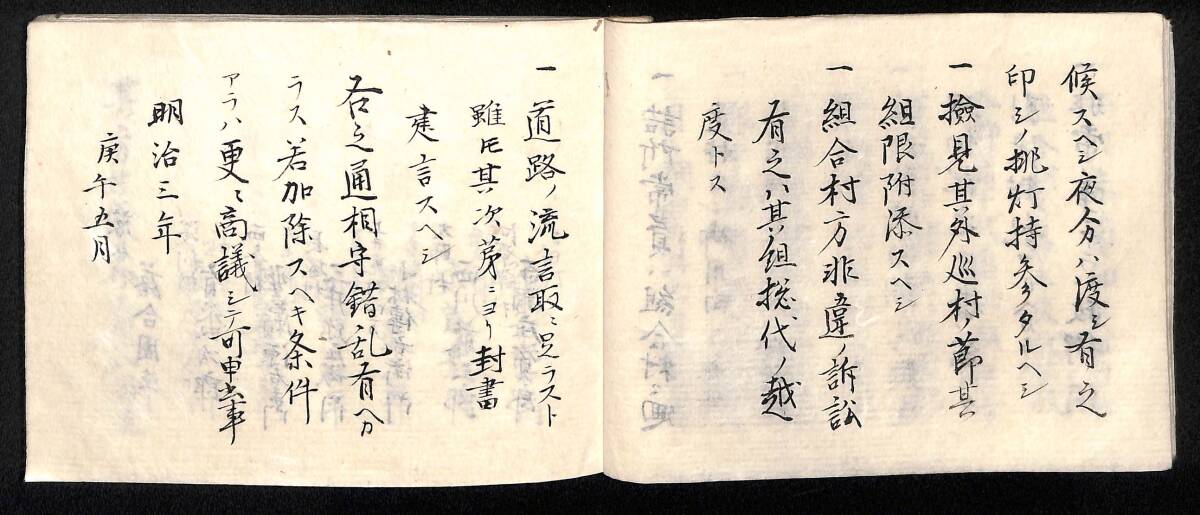 候スヘシ夜分ハ渡シ有之
印シノ挑灯持参タルヘシ
一 撿見其外巡村ノ節其
組限附添スヘシ
一 組合村方非違ノ訴訟
有之ハ其組総代ノ越
度トス
一 道路ノ流言取ニ足ラスト
雖𪜈其次第ニヨリ封書
建言スヘシ
右之通相守錯乱有ヘカ
ラス若加除スヘキ条件
アラハ更ニ商議シテ可申出事
明治三年
庚午五月